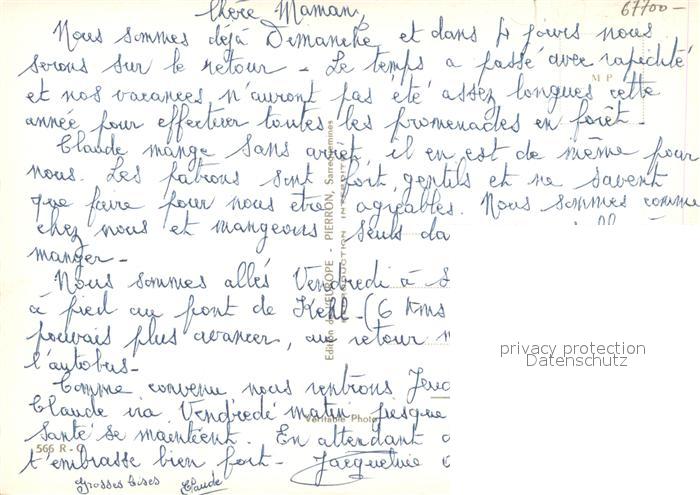 67700 -
Chère Maman,
Nous sommes déjà Dimanche et dans 4 jours nous
serons sur le retour - Le temps a passé avec rapidité
M P
et nos vacances n'auront pas été assez longues cette
année pour effectuer toutes les promenades en forêt -
Claude mange sans arrêt, il en est de même pour
nous. Les patrons sont fort gentils et ne savent
que faire pour nous être agréables. Nous sommes comme
chez nous et mangeons seuls da
manger -
Nous sommes allés Vendredi à S
à pied au pont de Kehl - (6 Kms
pouvais plus avancer, au retour
l'autobus -
Comme convenu nous rentrons Jeud
Claude ira Vendredi matin presque
santé se maintient. En attendant
t'embrasse bien fort - Jacqueline
Grosses bises Claude
Edition d'EUROPE - PIERRON, Sarreguemines
REPRODUCTION INTERDITE
Véritable Photo
566 R - C
privacy protection
Datenschutz